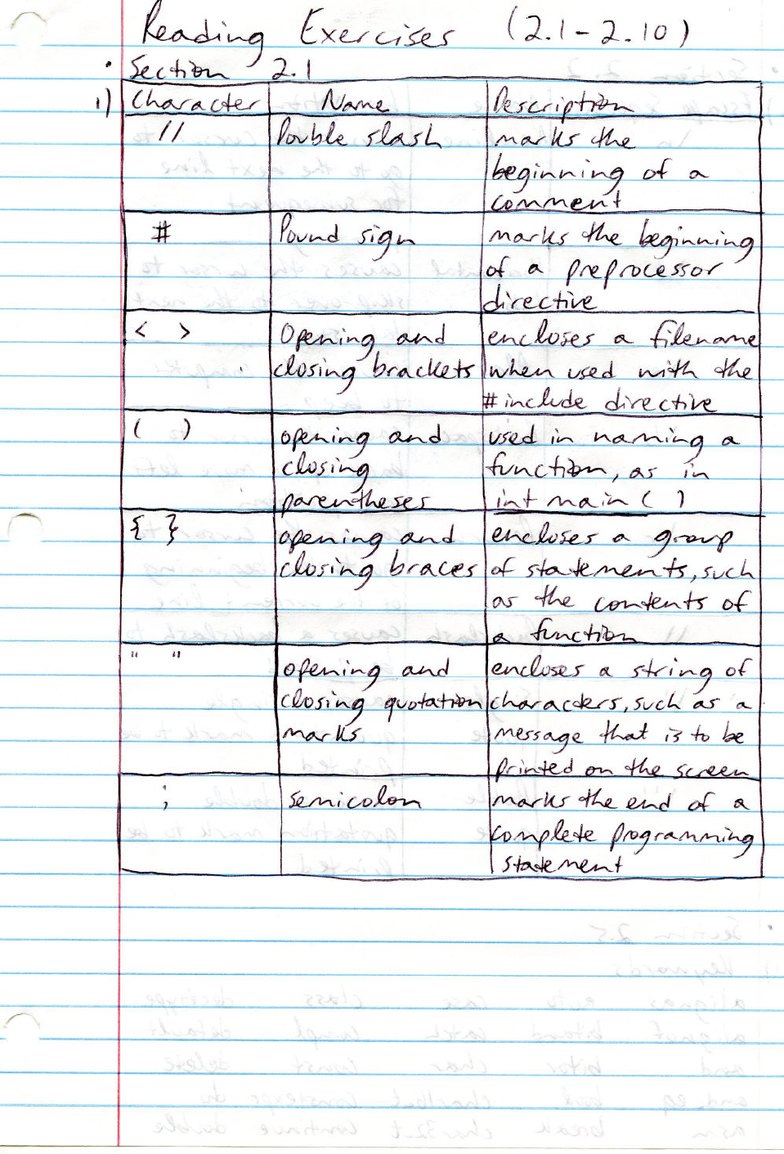 Reading Exercises (2.1-2.10)
• Section 2.1
1) Character Name Description
// Double slash marks the
beginning of a
comment
# Pound sign marks the beginning
of a preprocessor
directive
< > Opening and encloses a filename
closing brackets when used with the
#include directive
( ) opening and used in naming a
closing function, as in
parentheses int main ( )
{ } opening and encloses a group
closing braces of statements, such
as the contents of
a function
" " opening and encloses a string of
closing quotation characters, such as a
marks message that is to be
printed on the screen
; semicolon marks the end of a
complete programming
statement